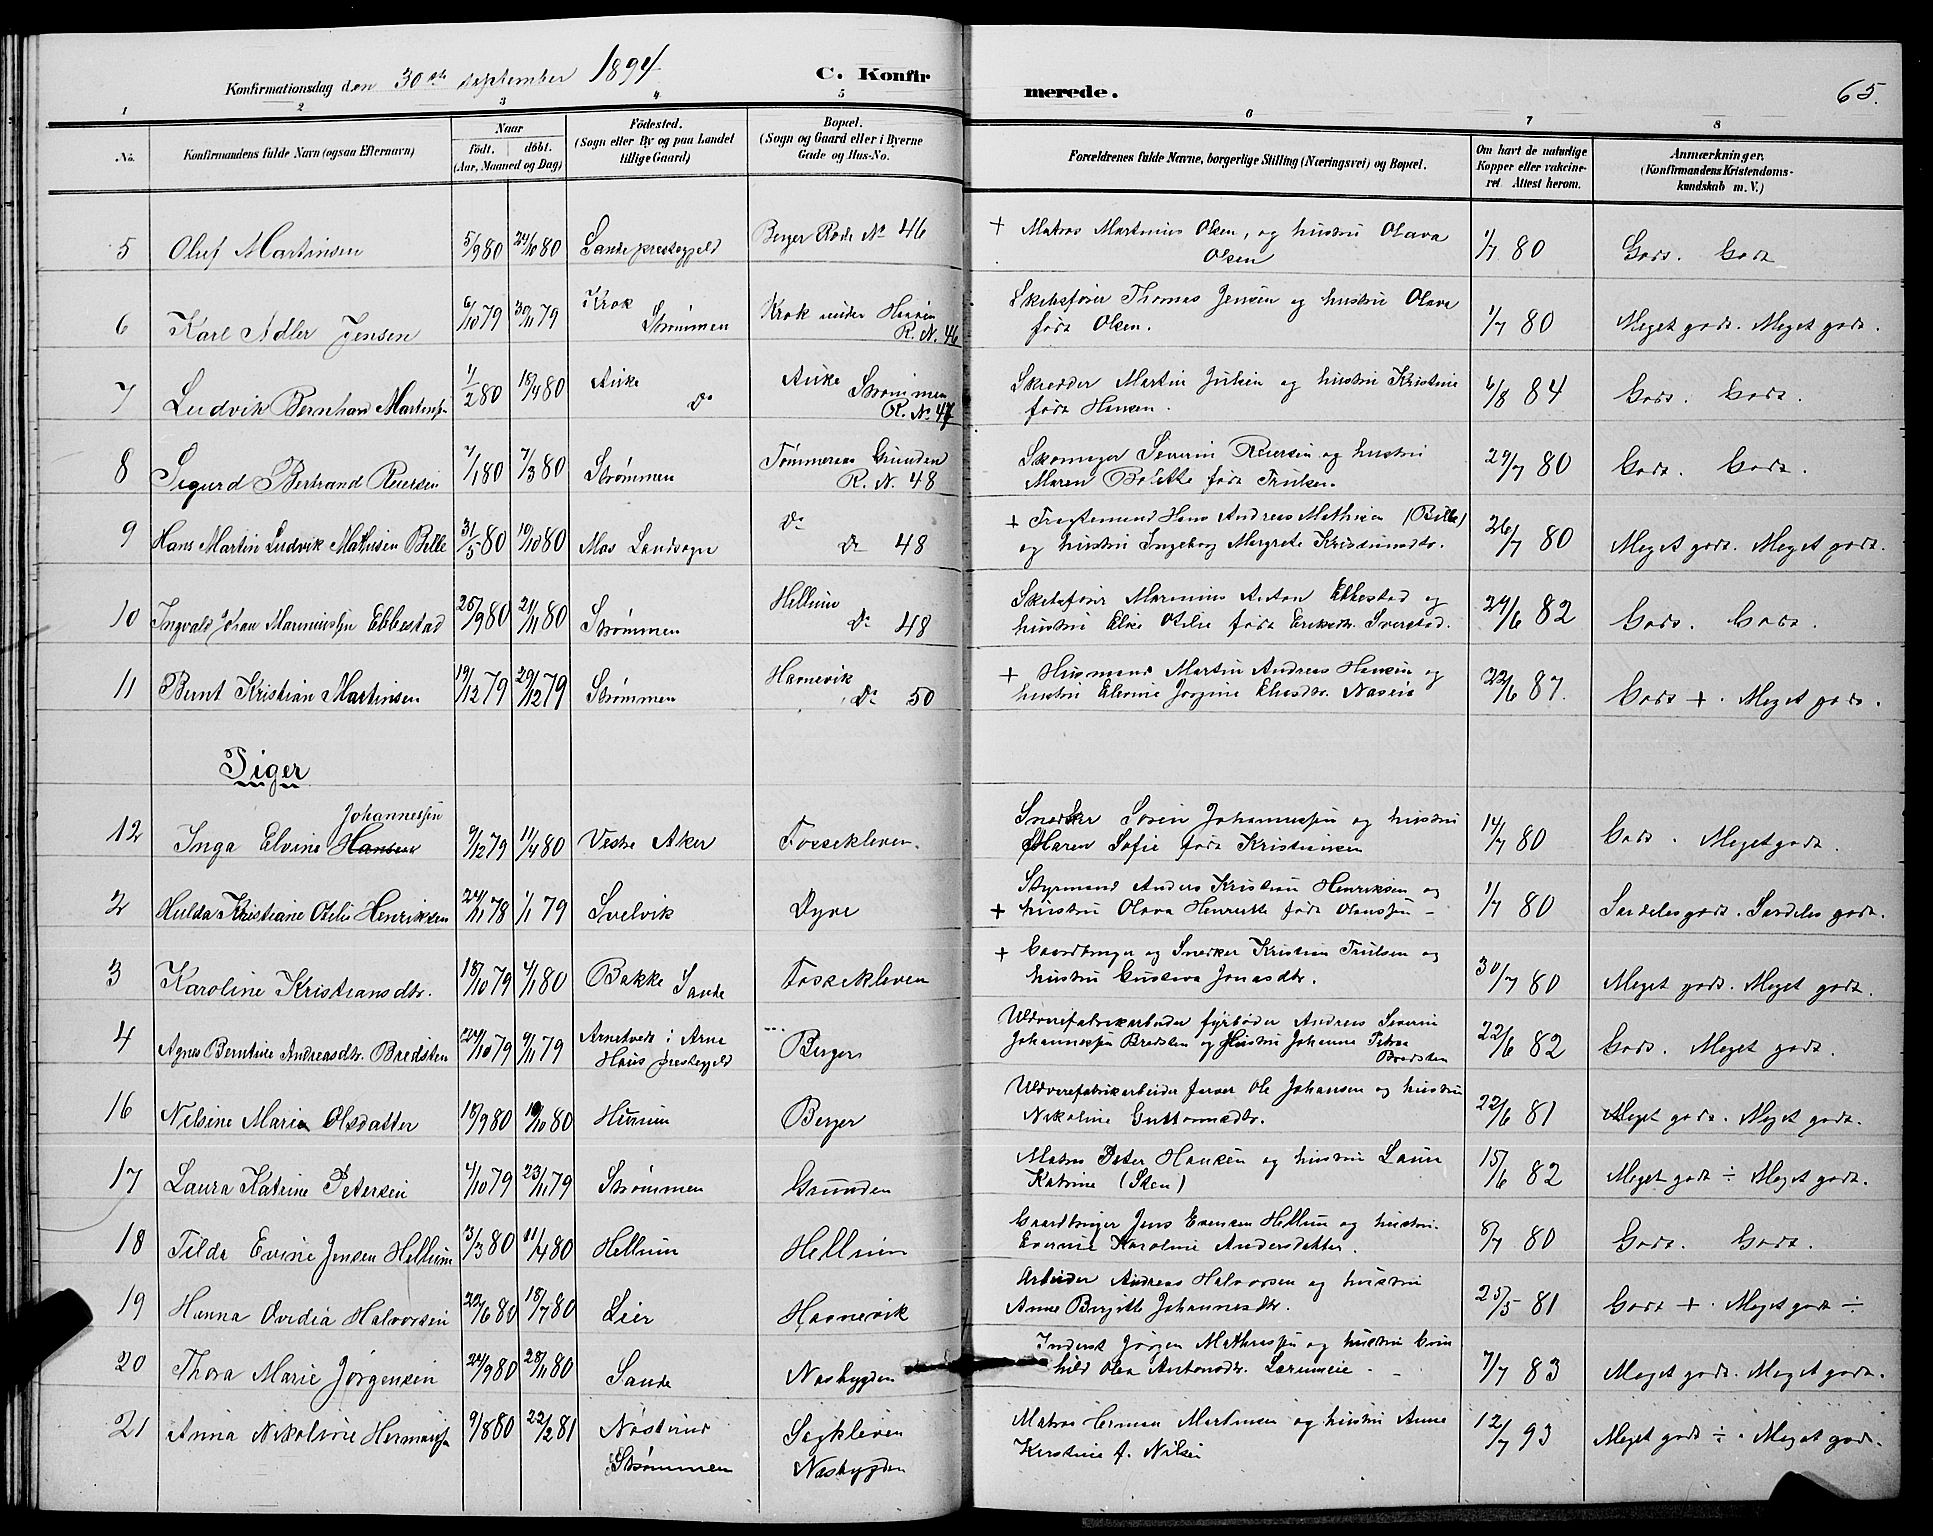 Konfirmationsdag den 30th September 1894 C. Konfirmerede. 65.
1 2 3 4 5 6 7 8
No. Konfirmandens fulde Navn (ogsaa Efternavn) Naar födt. döbt. (Aar, Maaned og Dag) Födested. (Sogn eller By og paa Landet tillige Gaard) Bopæl. (Sogn og Gaard eller i Byerne Gade og Hus-No. Forældrenes fulde Navne, borgerlige Stilling (Næringsvei) og Bopæl. Om havt de naturlige Kopper eller vakcineret Attest herom. Anmærkninger. (Konfirmandens Kristendomskundskab m. V.)
5 Oluf Martinsen 5/9 80 24/10 80 Sande prestegjeld Berger Rode No 46 + Matros Martinius Olsen, og hustru Olava Olsen 1/7 80 Godt. Godt
6 Karl Adler Jensen 6/10 79 30/11 79 Krok Strømmen Krok under R. N. 46 Skibsfører Thomas Jensen og hustru Olava født Olsen. 1/7 80 Meget godt. Meget godt.
7 Ludvik Bernhard Martinsen 1/2 80 18/4 80 Auke Do Auke Strømmen R. No 47 Skrædder Martin Julsen og hustru Kristine født Hansen. 6/8 84 Godt. Godt.
8 Sigurd Bertrand Reiersen 7/1 80 7/3 80 Strømmen Tømmeraas Grunden R. N. 48 Skomager Severin Reiersen og hustru Maren Bolette født Trulsen. 29/7 80 Godt. Godt.
9 Hans Martin Ludvik Mathisen Bille 31/5 80 19/10 80 Mos Landsogn Do Do 48 + Hans Andreas Mathisen (Bille) og hustru Ingeborg Margrete 26/7 80 Meget godt. Meget godt.
10 Ingvald Johan Mariniussen Ebbestad 26/9 80 21/11 80 Strømmen Hellum Do 48 Skibsfører Marinius Anton Ebbestad og hustru Elise Otilie født Eriksdtr. 24/6 82 Godt. Godt.
11 Bernt Kristian Martinsen 19/12 79 29/12 79 Strømmen Havnevik Do 50 + Husmand Martin Andreas Hansen og hustru Elevine Jørgine 22/6 87. Godt +. Meget godt.
Piger
12 Inga Elvine Hansen Johannessen 9/12 79 11/4 80 Vestre Aker Fossekleven. Snedker Soren Johannessen og hustru Maren Sofie født Kristiansen 14/7 80 Godt. Meget godt.
2 Hulda Kristiane Otilie Henriksen 24/11 78 1/1 79 Svelvik Dyve Styrmand Anders Kristian Henriksen og + hustru Olava Henriette født Olaussen - 1/7 80 Særdeles godt. Særdeles godt.
3 Karoline Kristiansdtr. 18/10 79 4/1 80 Bakke Sande Fossekleven + Gaardbruger og Snedker Kristian Trulsen og hustru Gustava Jonasdtr. 30/7 80 Meget godt. Meget godt.
4 Agnes Berntine Andreasdtr. Bredsten 24/10 79 9/11 79 Arnetveit i Arne Haus prestegjeld Berger Uldvarefabrikarbeider fyrbøder Andreas Severin Johannessen Bredsten og Hustru Johanne Petrea Bredsten 22/6 82 Godt. Meget godt.
16 Nilsine Maria Olsdatter 18/9 80 10/10 80 Hurum Berger Uldvarefabrikarbeider farver Ole Johansen og hustru Nikoline Guttormsdtr. 22/6 81 Meget godt. Meget godt.
17 Laura Katrine Petersen 4/10 79 23/11 79 Strømmen Grunden Matros Peter Hansen og hustru Laura Katrine (Sken) 15/6 82 Meget godt ÷ Meget godt.
18 Tilda Evine Jensen Hellum 3/3 80 11/4 80 Hellum Hellum Gaardbruger Jens Evensen Hellum og hustru. Evernie Karoline Andersdatter. 8/7 80 Godt. Godt.
19 Hanna Ovidia Halvorsen 22/6 80 18/7 80 Lier Havnevik Arbeider Andreas Halvorsen og hustru Anne Birgitte Johannesdtr. 25/5 81 Godt +. Meget godt ÷
20 Thora Marie Jørgensen 24/9 80 28/11 80 Sande Nasbygden Inderst Jørgen Mathiassen og hustru Gunhild Olea Antonsdtr. - 7/7 83 Meget godt. Meget godt.
21 Anna Nikoline Hermansen 9/8 80 22/2 81 Nøstrud Strømmen Sagkleven Nasbygden Matros Herman Martinsen og hustru Anne Kirstine f. Nilsen 12/7 93 Meget godt ÷. Meget godt.